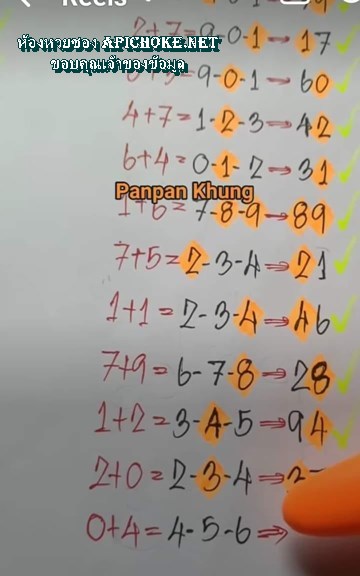 Reels
2+7=9-0-1→17
9-0-1→60
ห้องหวยซอง APICHOKE.NET
ขอบคุณเจ้าของข้อมูล
4+7=1-2-3→42
6+4=0-1-2→31
Panpan Khung
1+6=7-8-9→89
7+5=2-3-4→21
1+1=2-3-4→46
7+9=6-7-8→28
1+2=3-4-5→94
2+0=2-3-4→
0+4=4-5-6⇒